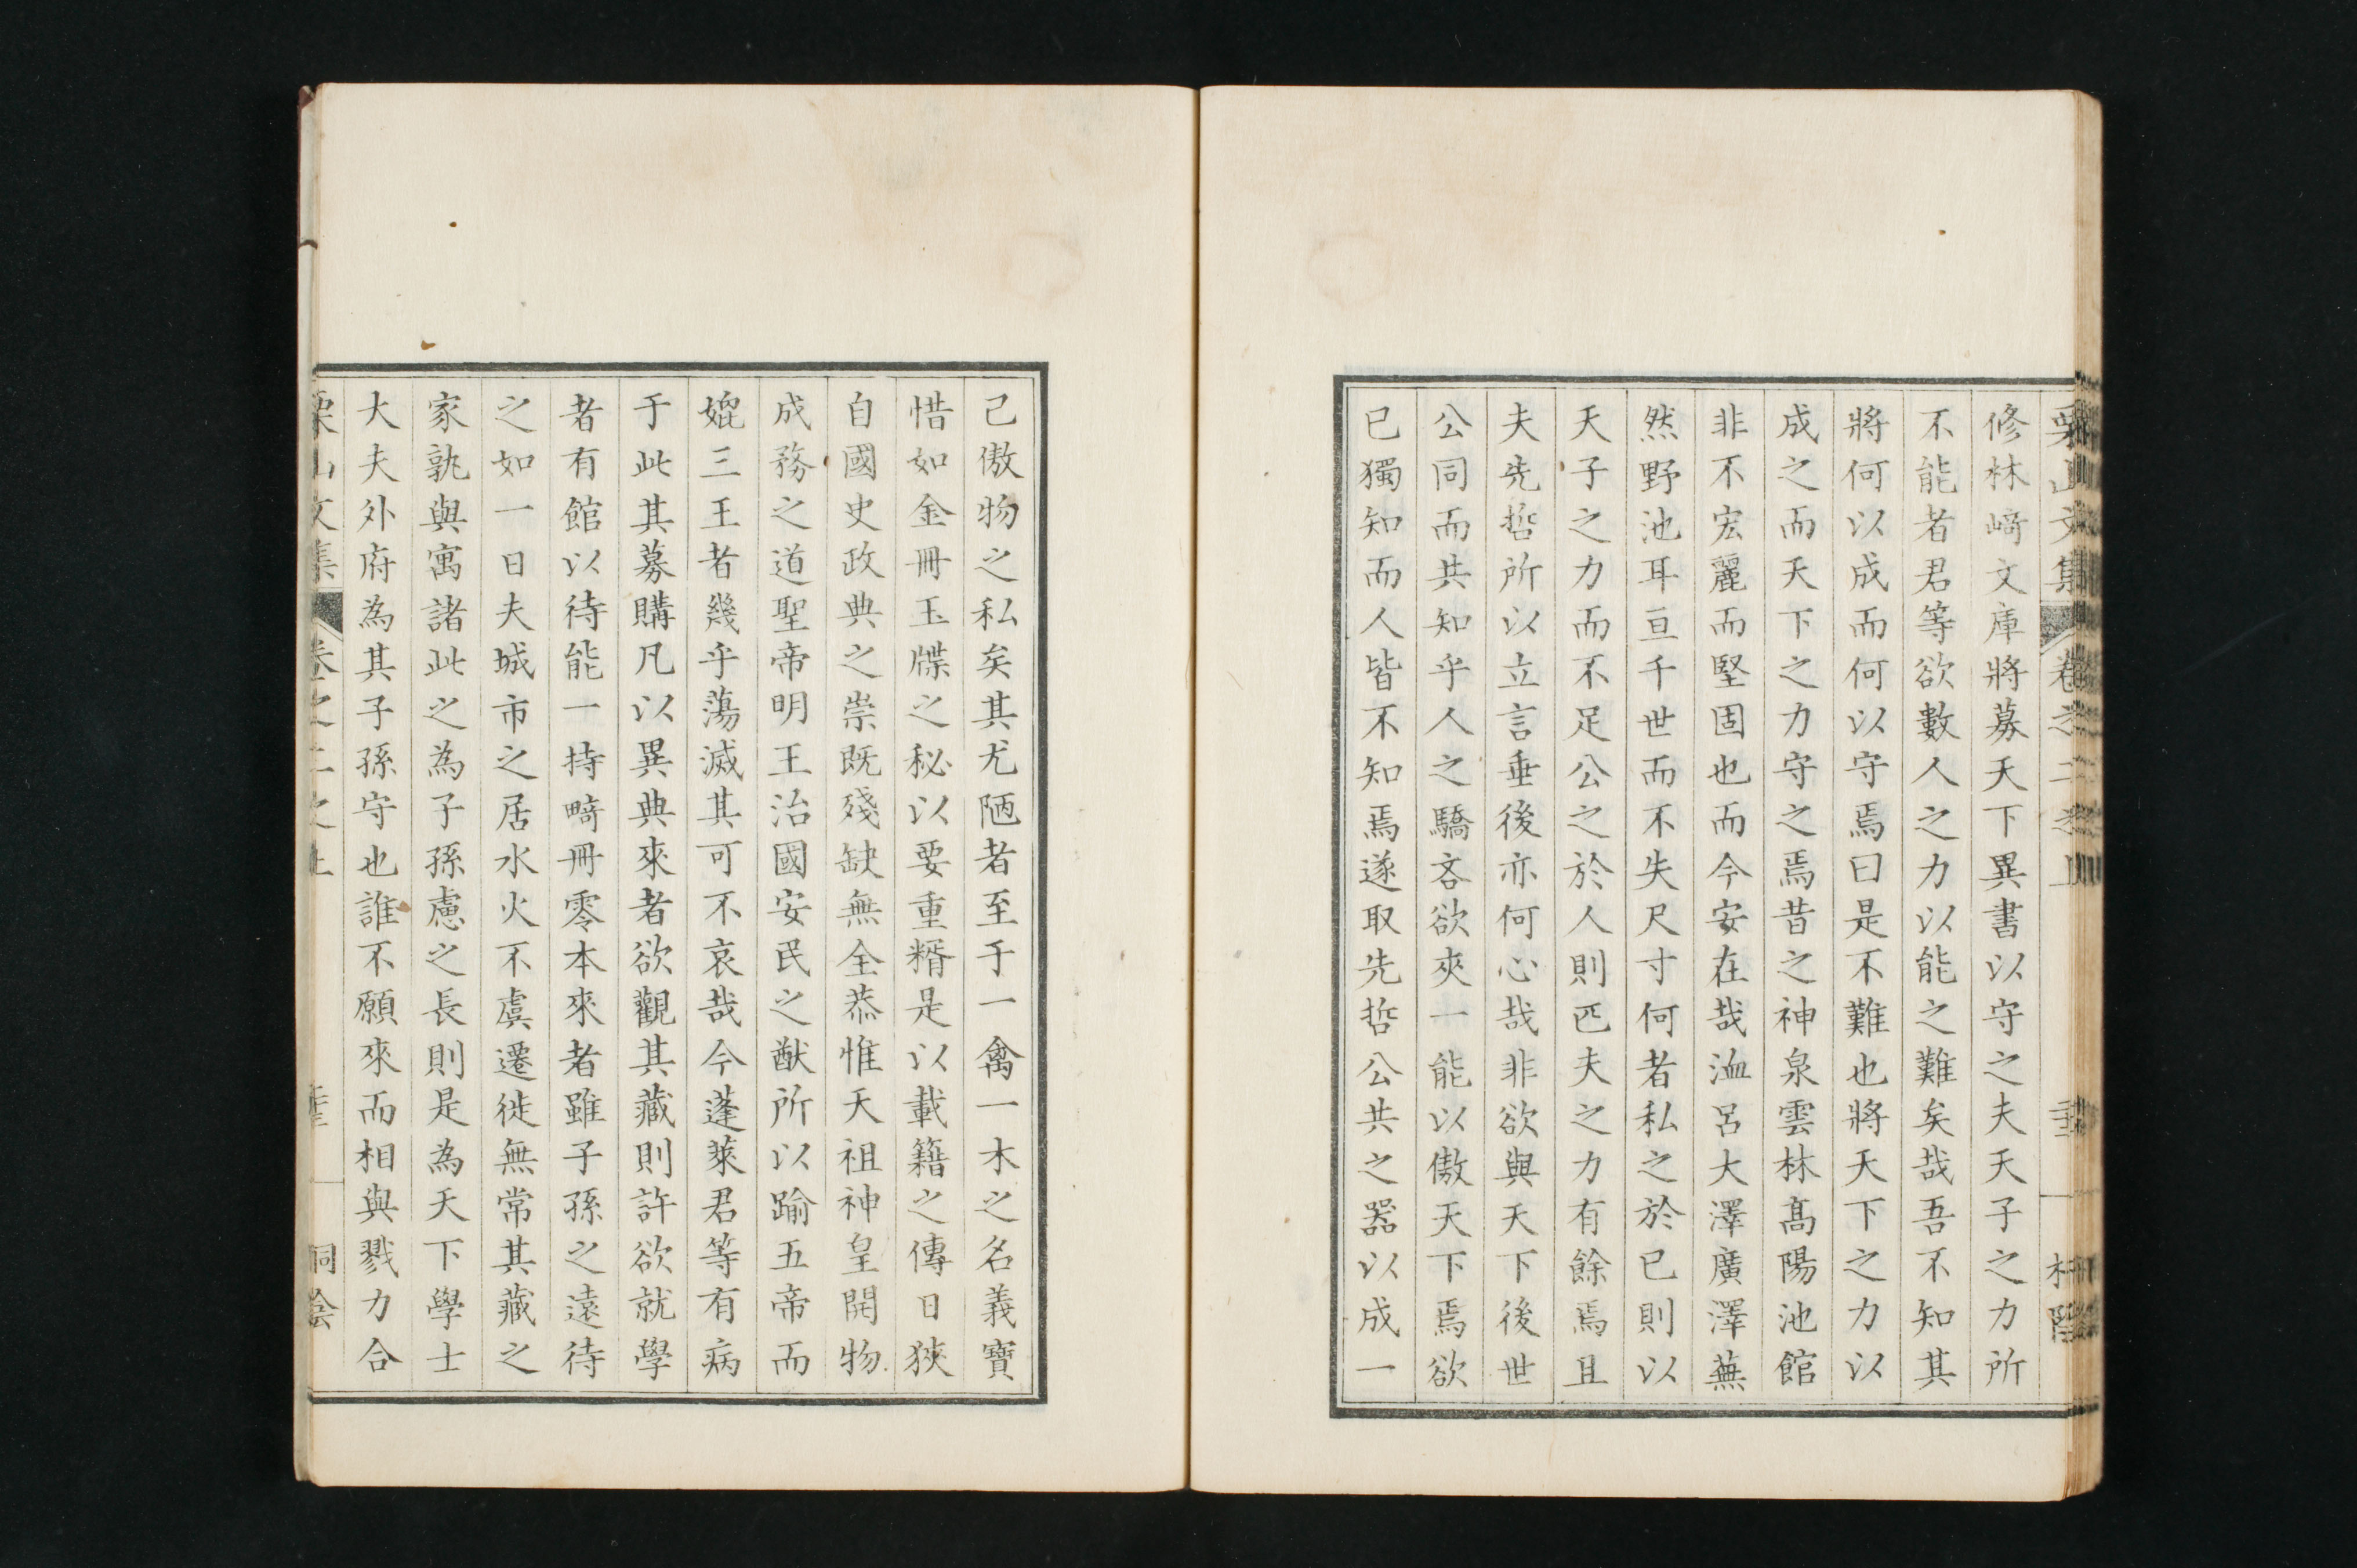 栗山文集 卷之二之上
修林﨑文庫將募天下異書以守之夫天子之力所
不能者君等欲數人之力以能之難矣哉吾不知其
將何以成而何以守焉曰是不難也將天下之力以
成之而天下之力守之焉昔之神泉雲林高陽池館
非不宏麗而堅固也而今安在哉洫呂大澤廣澤蕪
然野池耳亘千世而不失尺寸何者私之於已則以
天子之力而不足公之於人則匹夫之力有餘焉且
夫先哲所以立言垂後亦何心哉非欲與天下後世
公同而共知乎人之驕吝欲夾一能以傲天下焉欲
已獨知而人皆不知焉遂取先哲公共之器以成一
己傲物之私矣其尤陋者至于一禽一木之名義寶
惜如金冊玉牒之秘以要重糈是以載籍之傳日狹
自國史政典之崇既殘缺無全恭惟天祖神皇開物
成務之道聖帝明王治國安民之猷所以踰五帝而
媲三王者幾乎蕩滅其可不哀哉今蓬萊君等有病
于此其募購凡以異典來者欲觀其藏則許欲就學
者有館以待能一持畸冊零本來者雖子孫之遠待
之如一日夫城市之居水火不虞遷徙無常其藏之
家孰與寓諸此之為子孫慮之長則是為天下學士
大夫外府為其子孫守也誰不願來而相與戮力合
栗山文集 卷之二之上